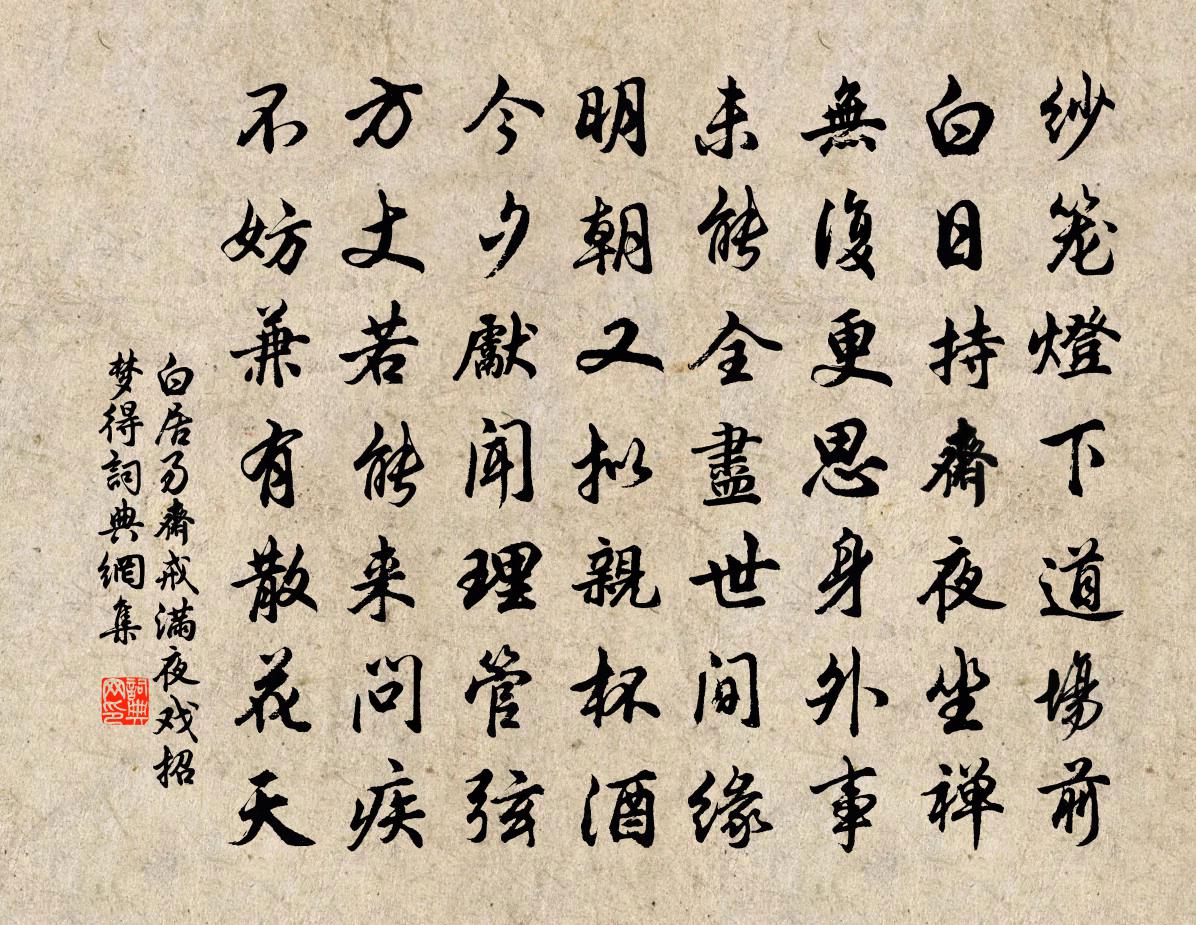 紗笼燈下道場前
白日持齋夜坐禅
無復更思身外事
未能全盡世间緣
明朝又拟親杯酒
今夕獻闻理管弦
方丈若能来问疾
不妨兼有散花天
白居易齋戒滿夜戏招
梦得詞典網集
詞典网印